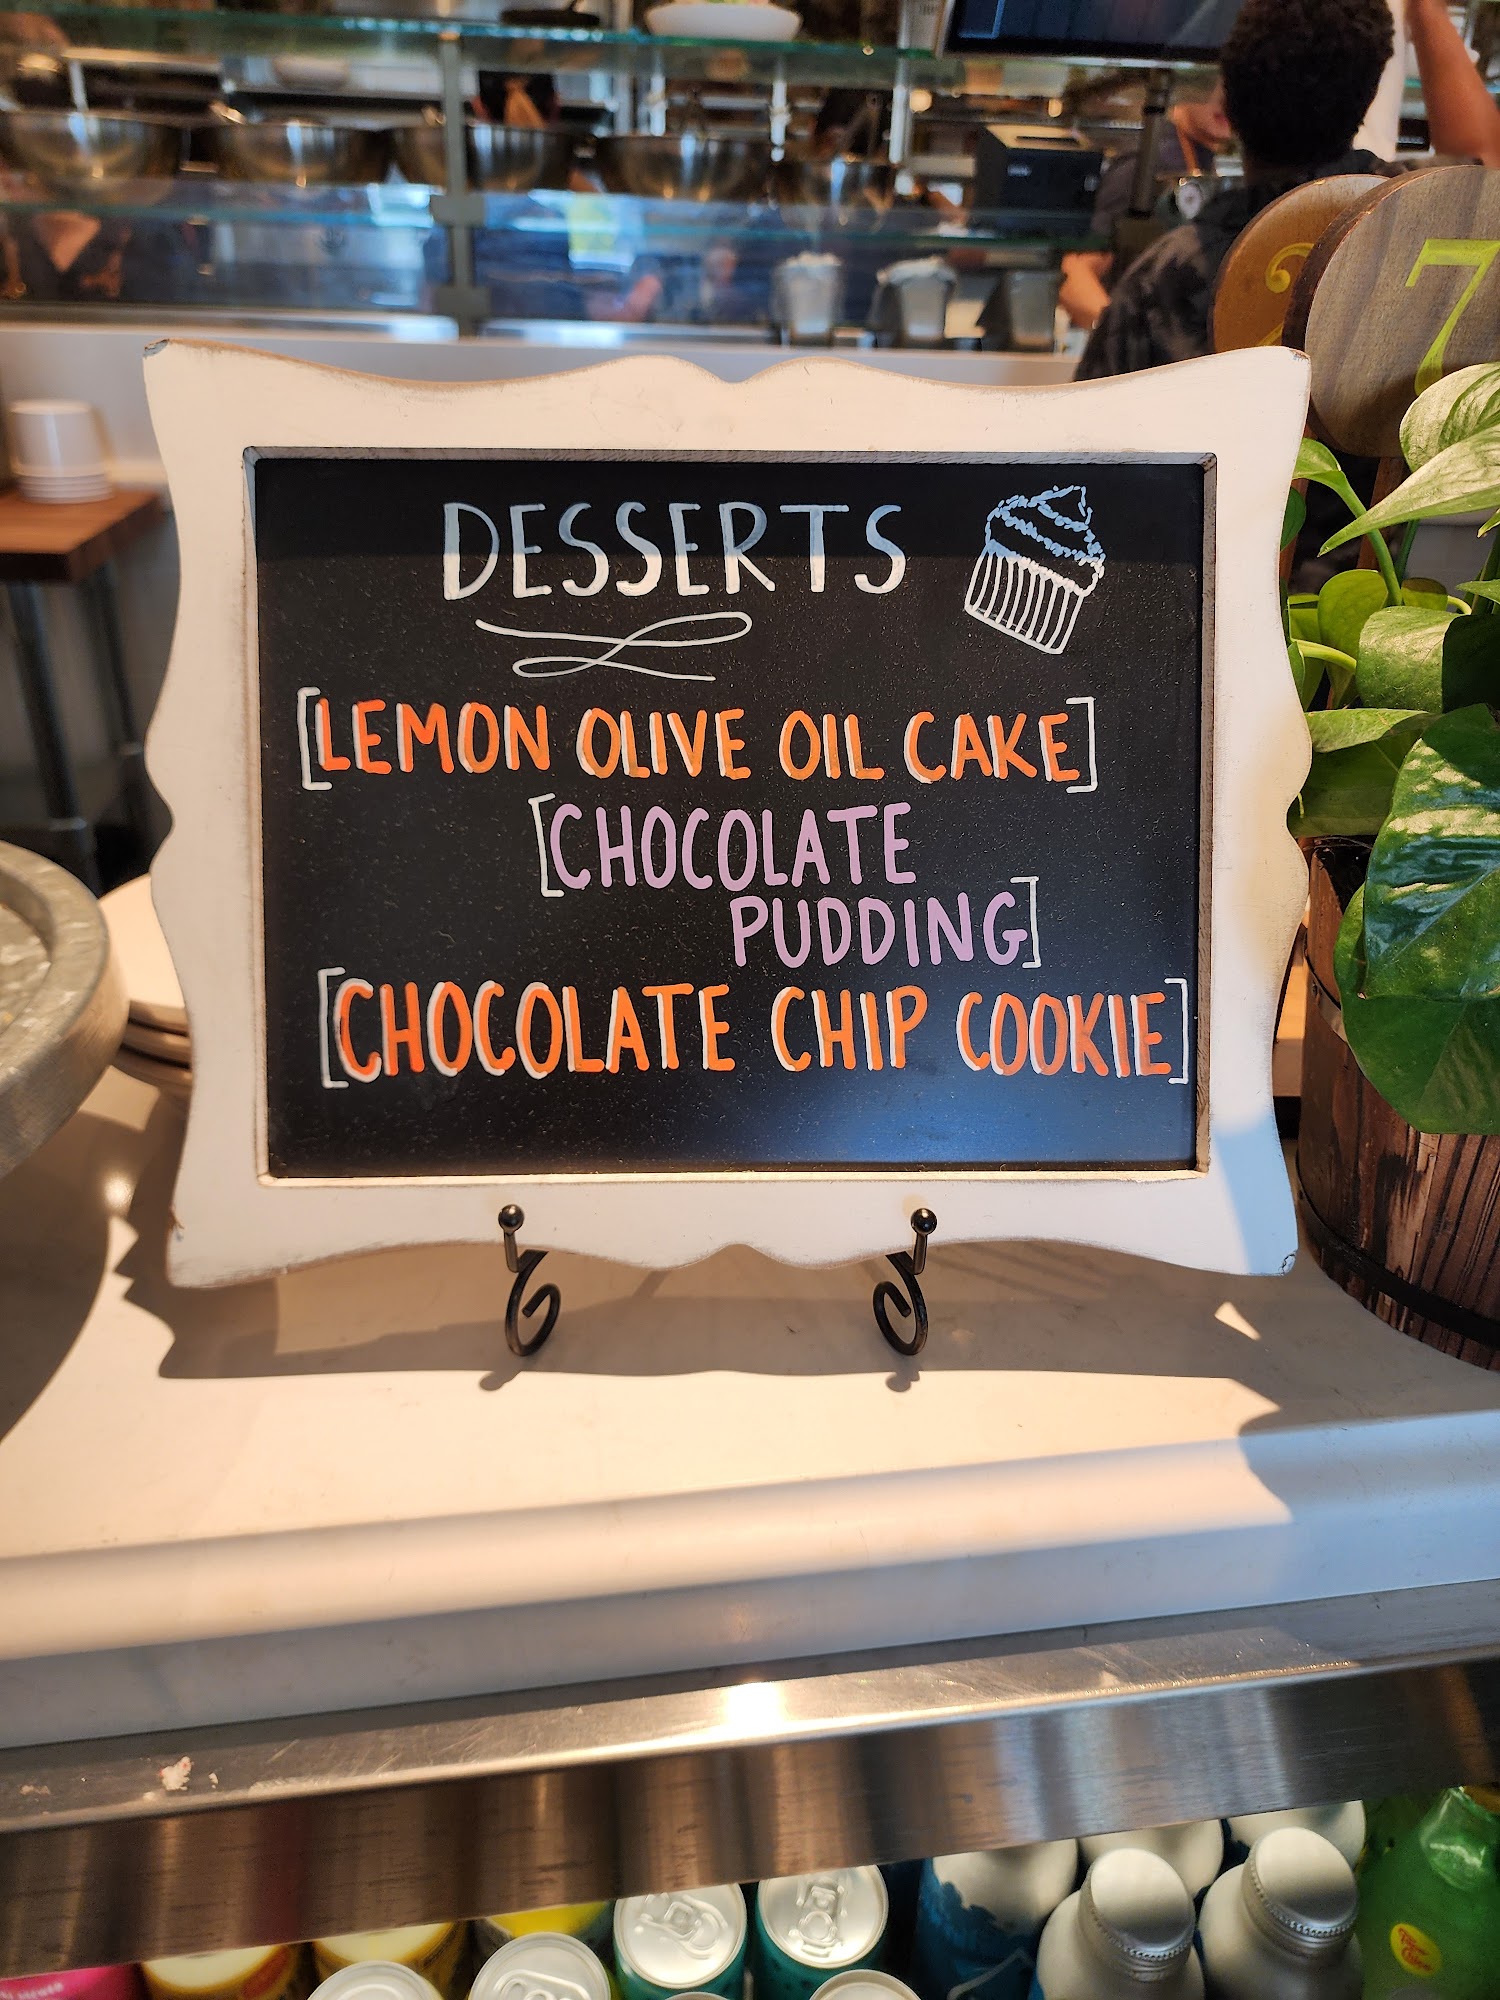 DESSERTS
[LEMON OLIVE OIL CAKE]
[CHOCOLATE
PUDDING]
[CHOCOLATE CHIP COOKIE]
2
7
Topo
Chico